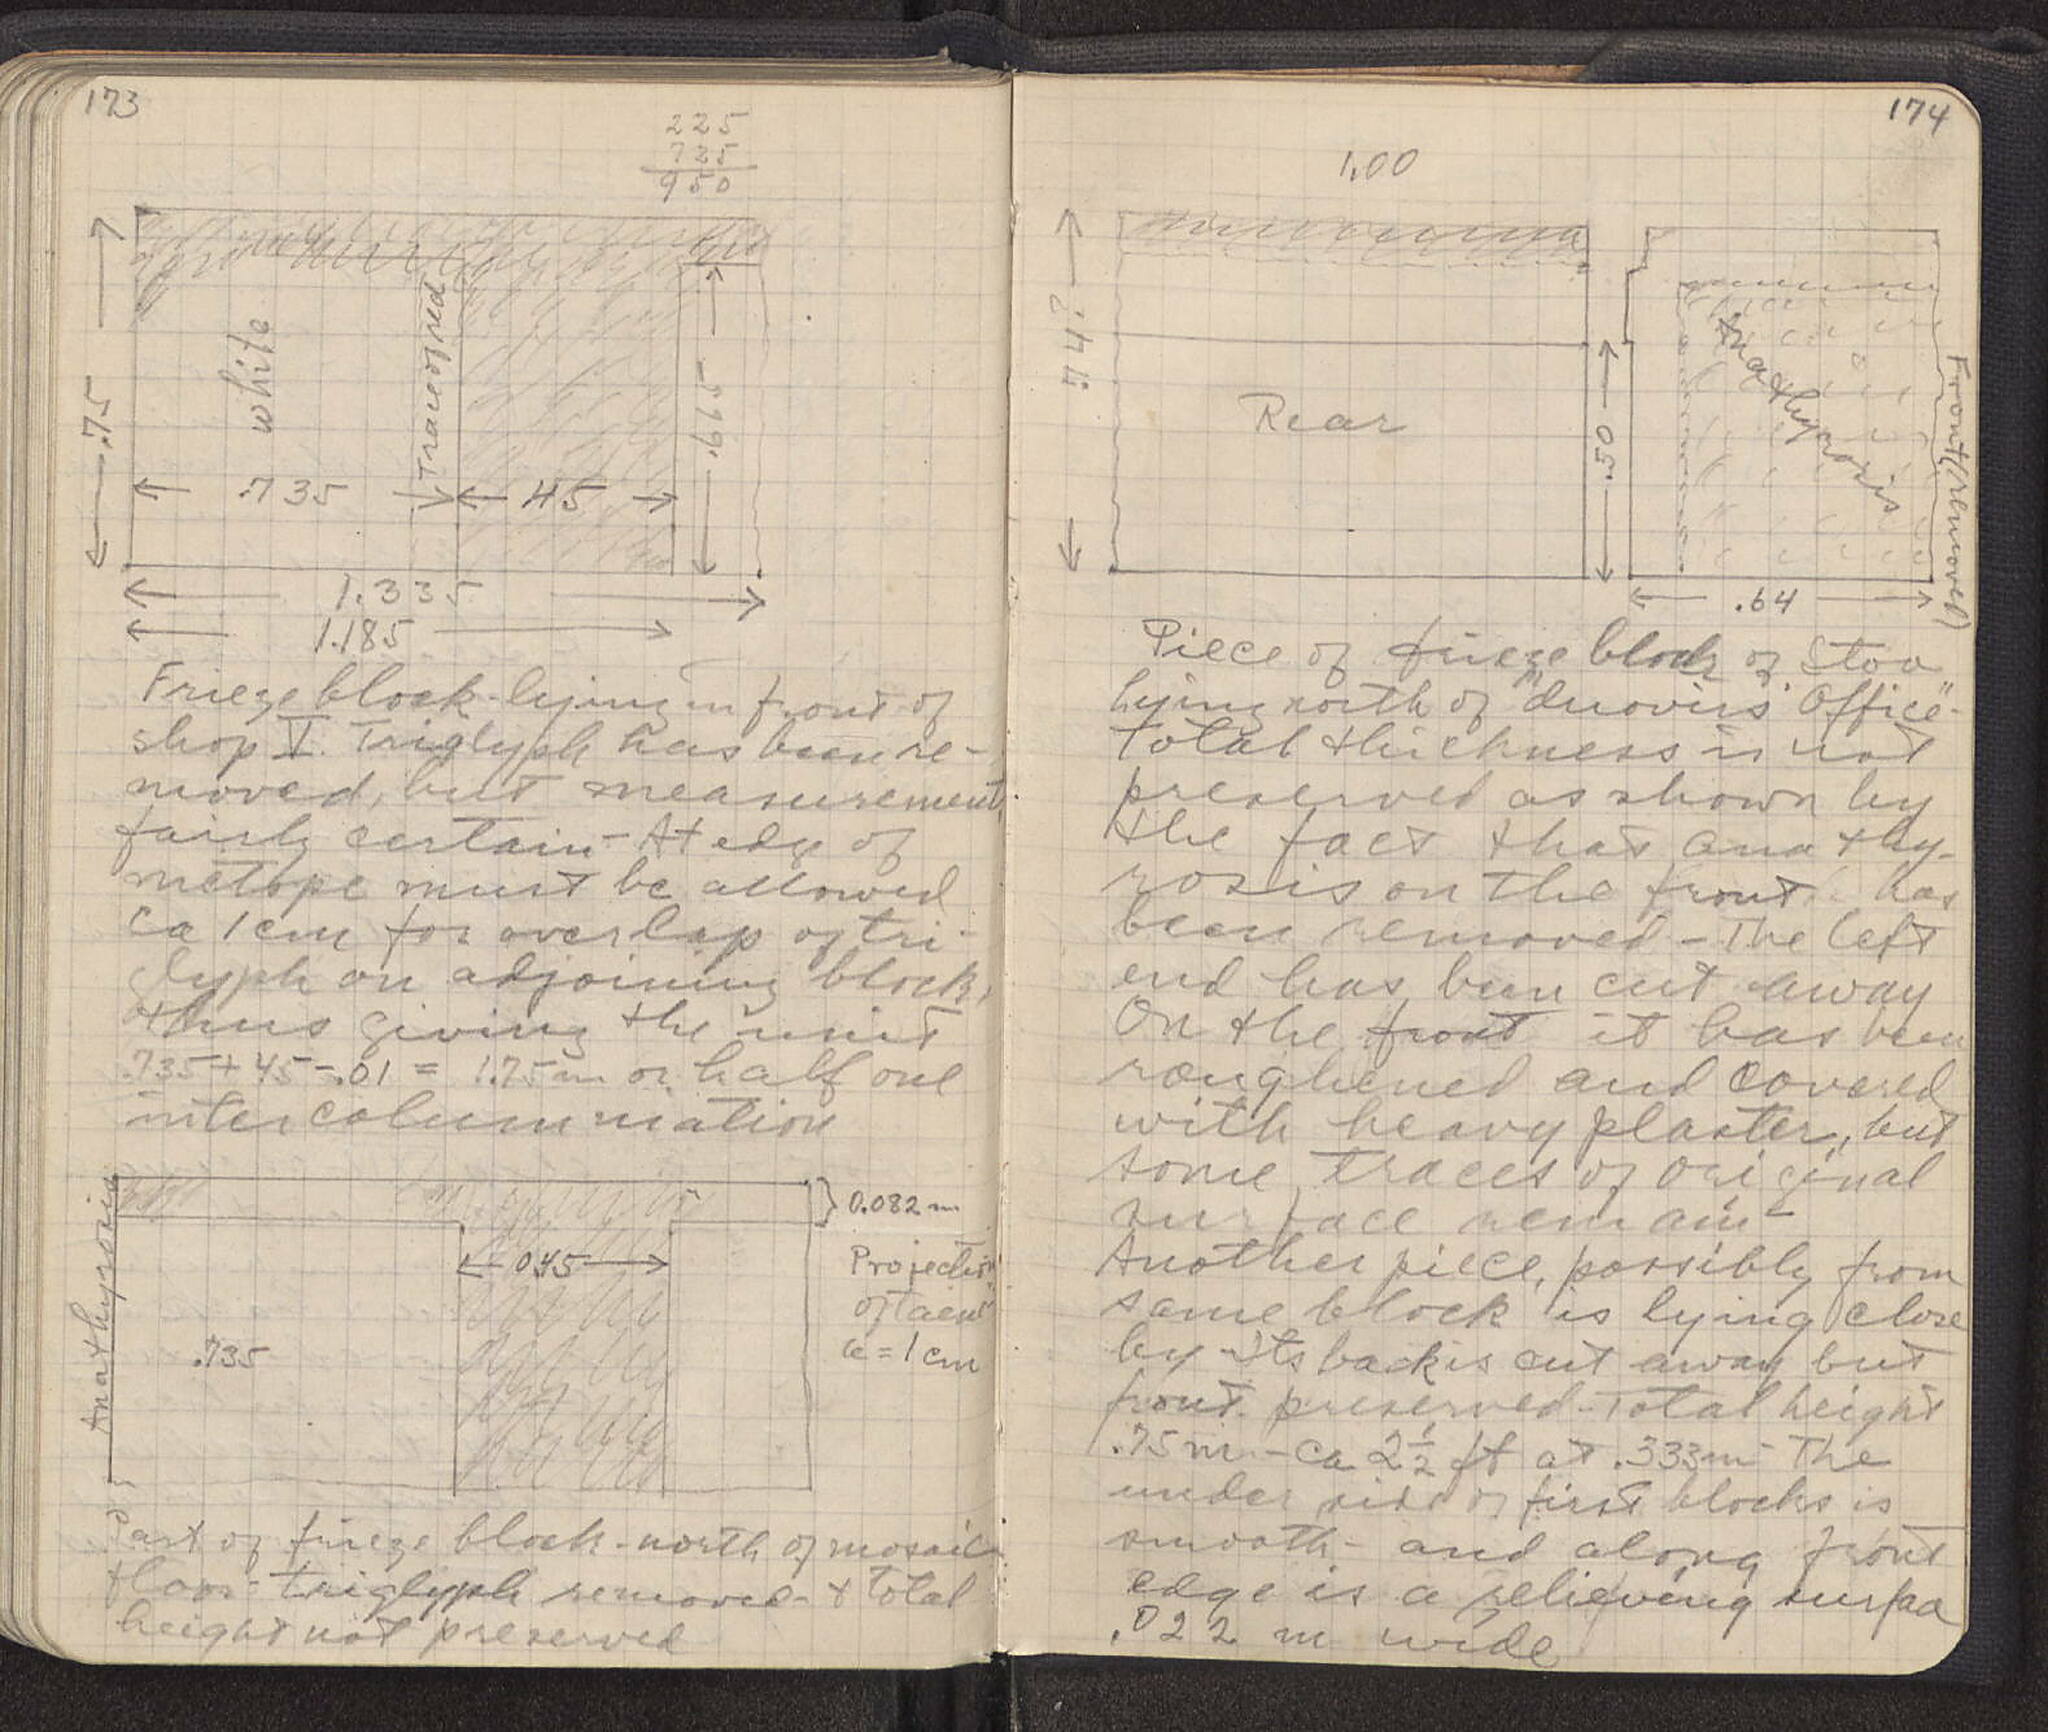 173
225
725
950
.75
white
Trace of red
.735
45
.615
1.335
1.185
Frieze block lying in front of
shop V. Triglyph has been re-
moved, but measurement
fairly certain - At edge of
metope must be allowed
ca 1cm for overlap of tri-
glyph on adjoining block,
thus giving the unit
.735 + 45 - .01 = 1.75m or half one
intercolumniation
Anathyrosis
0.082 m
045
Projection
of taenia
ca = 1 cm
.735
Part of frieze block - north of mosaic
floor - triglyph removed - & total
height not preserved
174
1.00
.74?
Rear
.50
Anathyrosis
Front (removed)
.64
Piece of frieze block of Stoa
lying north of "duovirs' Office" -
total thickness is not
preserved as shown by
the fact that anathy-
rosis on the front has
been removed - The left
end has been cut away
On the front it has been
roughened and covered
with heavy plaster, but
some traces of original
surface remain -
Another piece, possibly from
same block is lying close
by its back is cut away but
front preserved - Total height
.75m - ca 2½ ft at .333m The
under side of first blocks is
smooth - and along front
edge is a relieving surface
.022 m wide